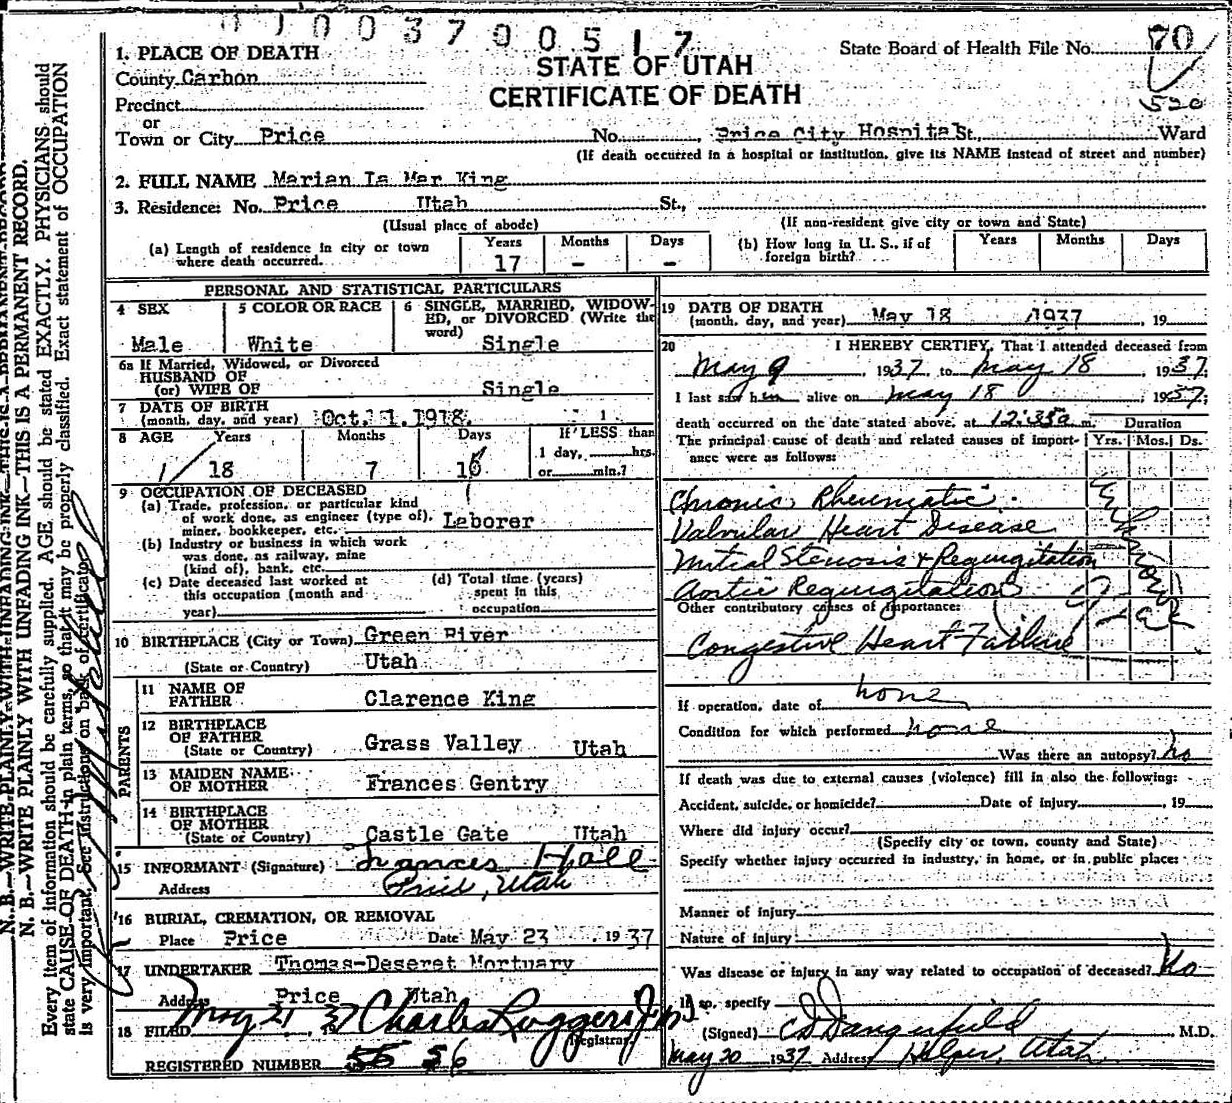 010037 00517
State Board of Health File No. 70
520
STATE OF UTAH
CERTIFICATE OF DEATH
1. PLACE OF DEATH
County Carbon
Precinct
or
Town or City Price No. , Price City Hospital St., Ward
(If death occurred in a hospital or institution, give its NAME instead of street and number)
2. FULL NAME Marian La Mar King
3. Residence: No. Price Utah St.,
(Usual place of abode) (If non-resident give city or town and State)
(a) Length of residence in city or town where death occurred. Years 17 Months - Days -
(b) How long in U. S., if of foreign birth? Years Months Days
PERSONAL AND STATISTICAL PARTICULARS
4 SEX Male
5 COLOR OR RACE White
6 SINGLE, MARRIED, WIDOWED, or DIVORCED (Write the word) Single
6a If Married, Widowed, or Divorced
HUSBAND OF
(or) WIFE OF Single
7 DATE OF BIRTH
(month, day, and year) Oct. 11 1918.
8 AGE Years 18 Months 7 Days
If LESS than
1 day, hrs.
or min.?
9 OCCUPATION OF DECEASED
(a) Trade, profession, or particular kind
of work done, as engineer (type of),
miner, bookkeeper, etc. Laborer
(b) Industry or business in which work
was done, as railway, mine
(kind of), bank, etc.
(c) Date deceased last worked at
this occupation (month and
year)
(d) Total time (years)
spent in this
occupation
10 BIRTHPLACE (City or Town) Green River
(State or Country) Utah
PARENTS
11 NAME OF
FATHER Clarence King
12 BIRTHPLACE
OF FATHER
(State or Country) Grass Valley Utah
13 MAIDEN NAME
OF MOTHER Frances Gentry
14 BIRTHPLACE
OF MOTHER
(State or Country) Castle Gate Utah
15 INFORMANT (Signature) Frances Hall
Address Price, Utah
16 BURIAL, CREMATION, OR REMOVAL
Place Price Date May 23 1937
17 UNDERTAKER Thomas-Deseret Mortuary
Address Price Utah
18 FILED May 21, 37 Charles Ruggeri Jr.
Registrar
REGISTERED NUMBER 55 56
19 DATE OF DEATH
(month, day, and year) May 18 1937 , 19
20 I HEREBY CERTIFY, That I attended deceased from
May 9 1937, to May 18 1937;
I last saw him alive on May 18 1937;
death occurred on the date stated above, at 12:35a m.
The principal cause of death and related causes of importance were as follows:
Duration
Yrs. Mos. Ds.
Chronic Rheumatic
Valvular Heart Disease
Mitral Stenosis & Regurgitation
Aortic Regurgitation
Unknown
Other contributory causes of importance:
Congestive Heart Failure
If operation, date of none
Condition for which performed none
Was there an autopsy? no
If death was due to external causes (violence) fill in also the following:
Accident, suicide, or homicide? Date of injury , 19
Where did injury occur?
(Specify city or town, county and State)
Specify whether injury occurred in industry, in home, or in public place:
Manner of injury
Nature of injury
Was disease or injury in any way related to occupation of deceased? No
If so, specify
(Signed) C D Dangerfield M.D.
May 20 1937 Address Helper, Utah
N. B.—WRITE PLAINLY WITH UNFADING INK—THIS IS A PERMANENT RECORD.
Every item of information should be carefully supplied. AGE should be stated EXACTLY. PHYSICIANS should
state CAUSE OF DEATH in plain terms, so that it may be properly classified. Exact statement of OCCUPATION
is very important. See instructions on back of certificate.